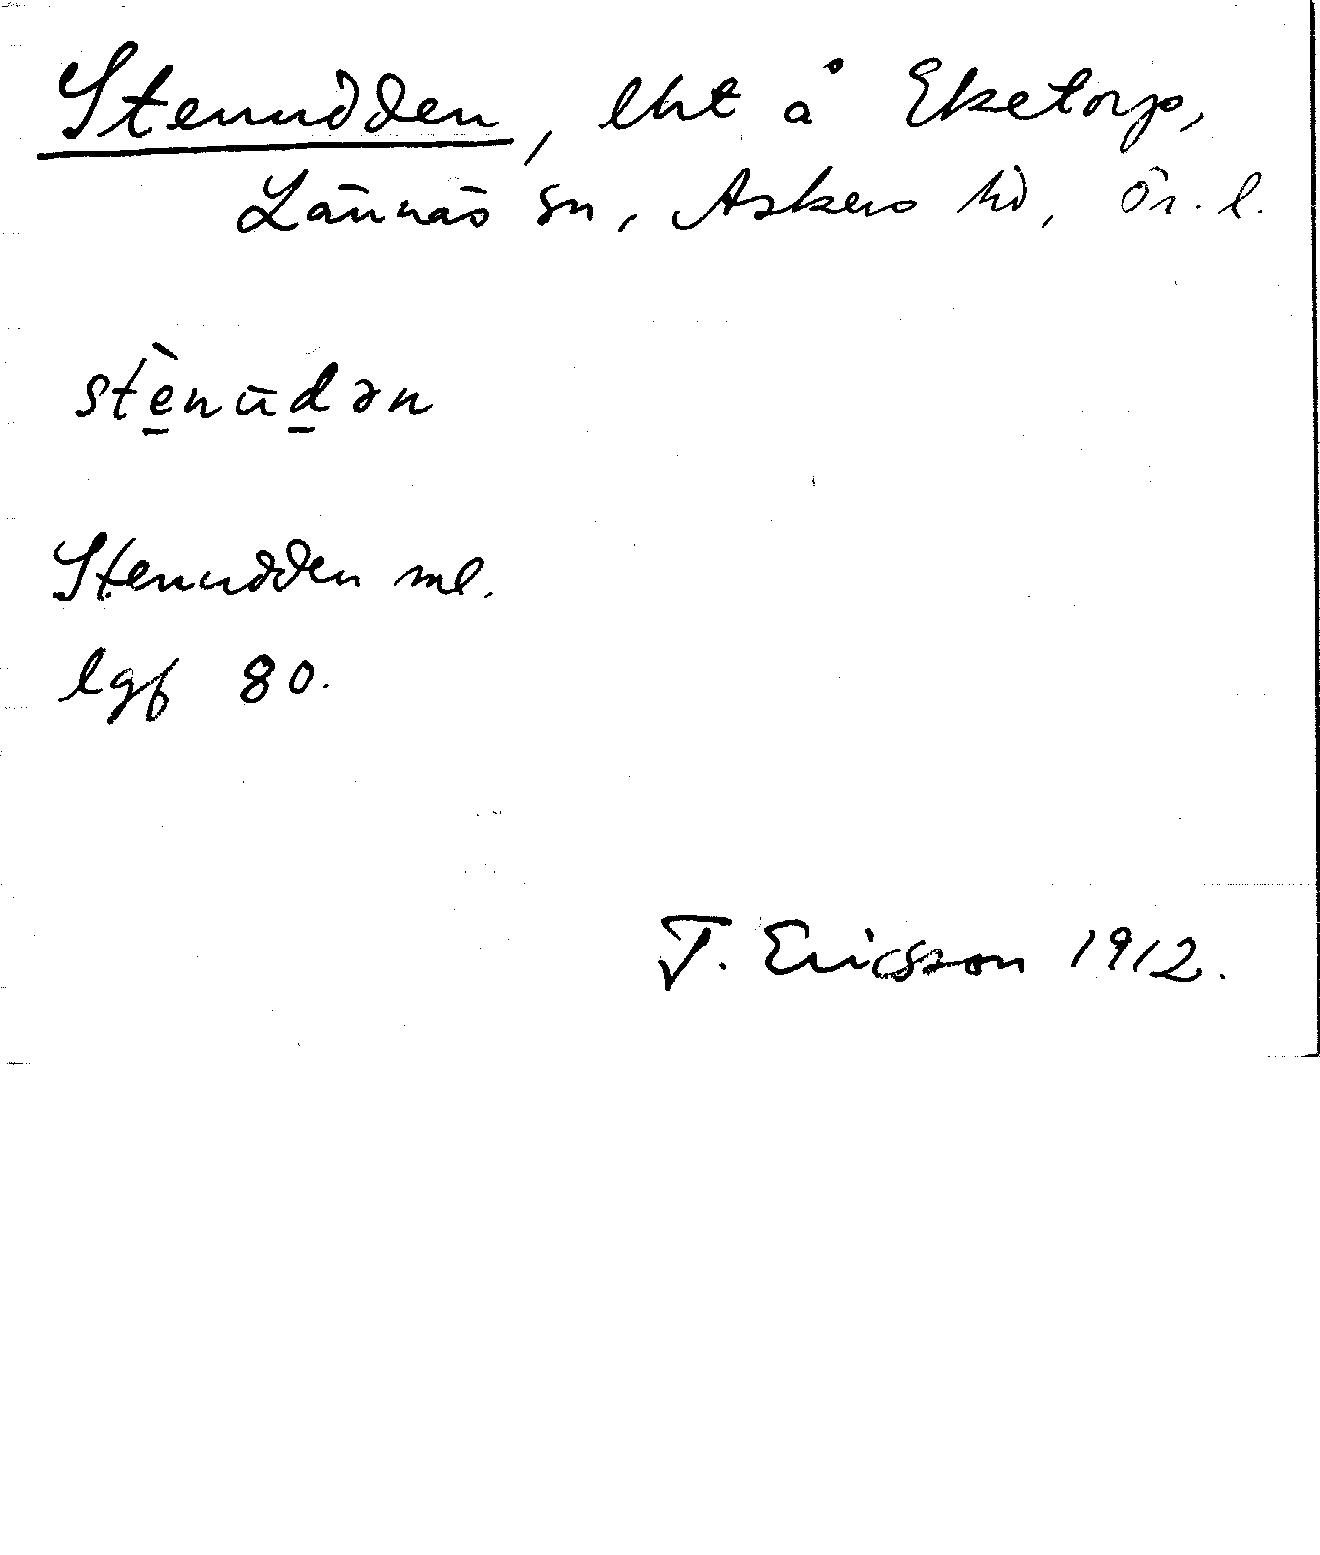 Stenudden, lht å Eketorp,
Lännäs sn, Askers hd, Ör. l.
stè̱nūḏən
Stenudden ml.
lgf 80.
T. Ericsson 1912.